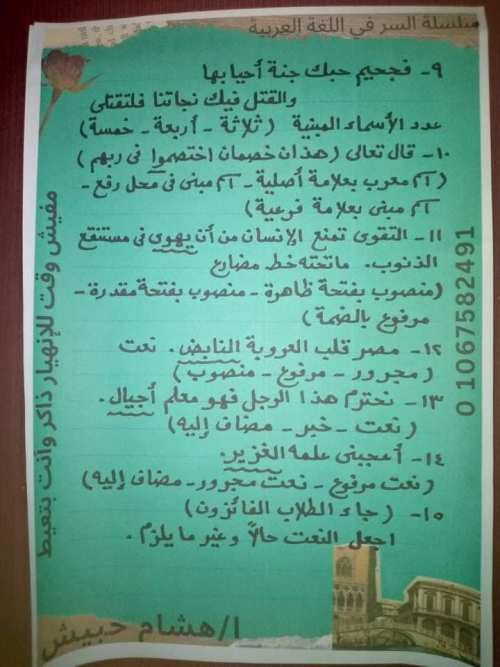 سلسلة السر في اللغة العربية
٩- فجحيم حبك جنة أحيا بها
والقتل فيك نجاتنا فلتقتلى
عدد الأسماء المبنية (ثلاثة - أربعة - خمسة)
١٠- قال تعالى (هذان خصمان اختصموا فى ربهم)
(اسم معرب بعلامة أصلية - اسم مبنى فى محل رفع -
اسم مبنى بعلامة فرعية)
١١- التقوى تمنع الإنسان من أن يهوى فى مستنقع
الذنوب. ماتحته خط مضارع
(منصوب بفتحة ظاهرة - منصوب بفتحة مقدرة -
مرفوع بالضمة)
١٢- مصر قلب العروبة النابض. نعت
(مجرور - مرفوع - منصوب)
١٣- نحترم هذا الرجل فهو معلم أجيال.
(نعت - خبر - مضاف إليه)
١٤- أعجبنى علمه الغزير.
(نعت مرفوع - نعت مجرور - مضاف إليه)
١٥- (جاء الطلاب الفائزون)
اجعل النعت حالاً وغير ما يلزم.
مفيش وقت للإنهيار ذاكر وأنت بتعيط
0 1067582491
ا/هشام حبيش